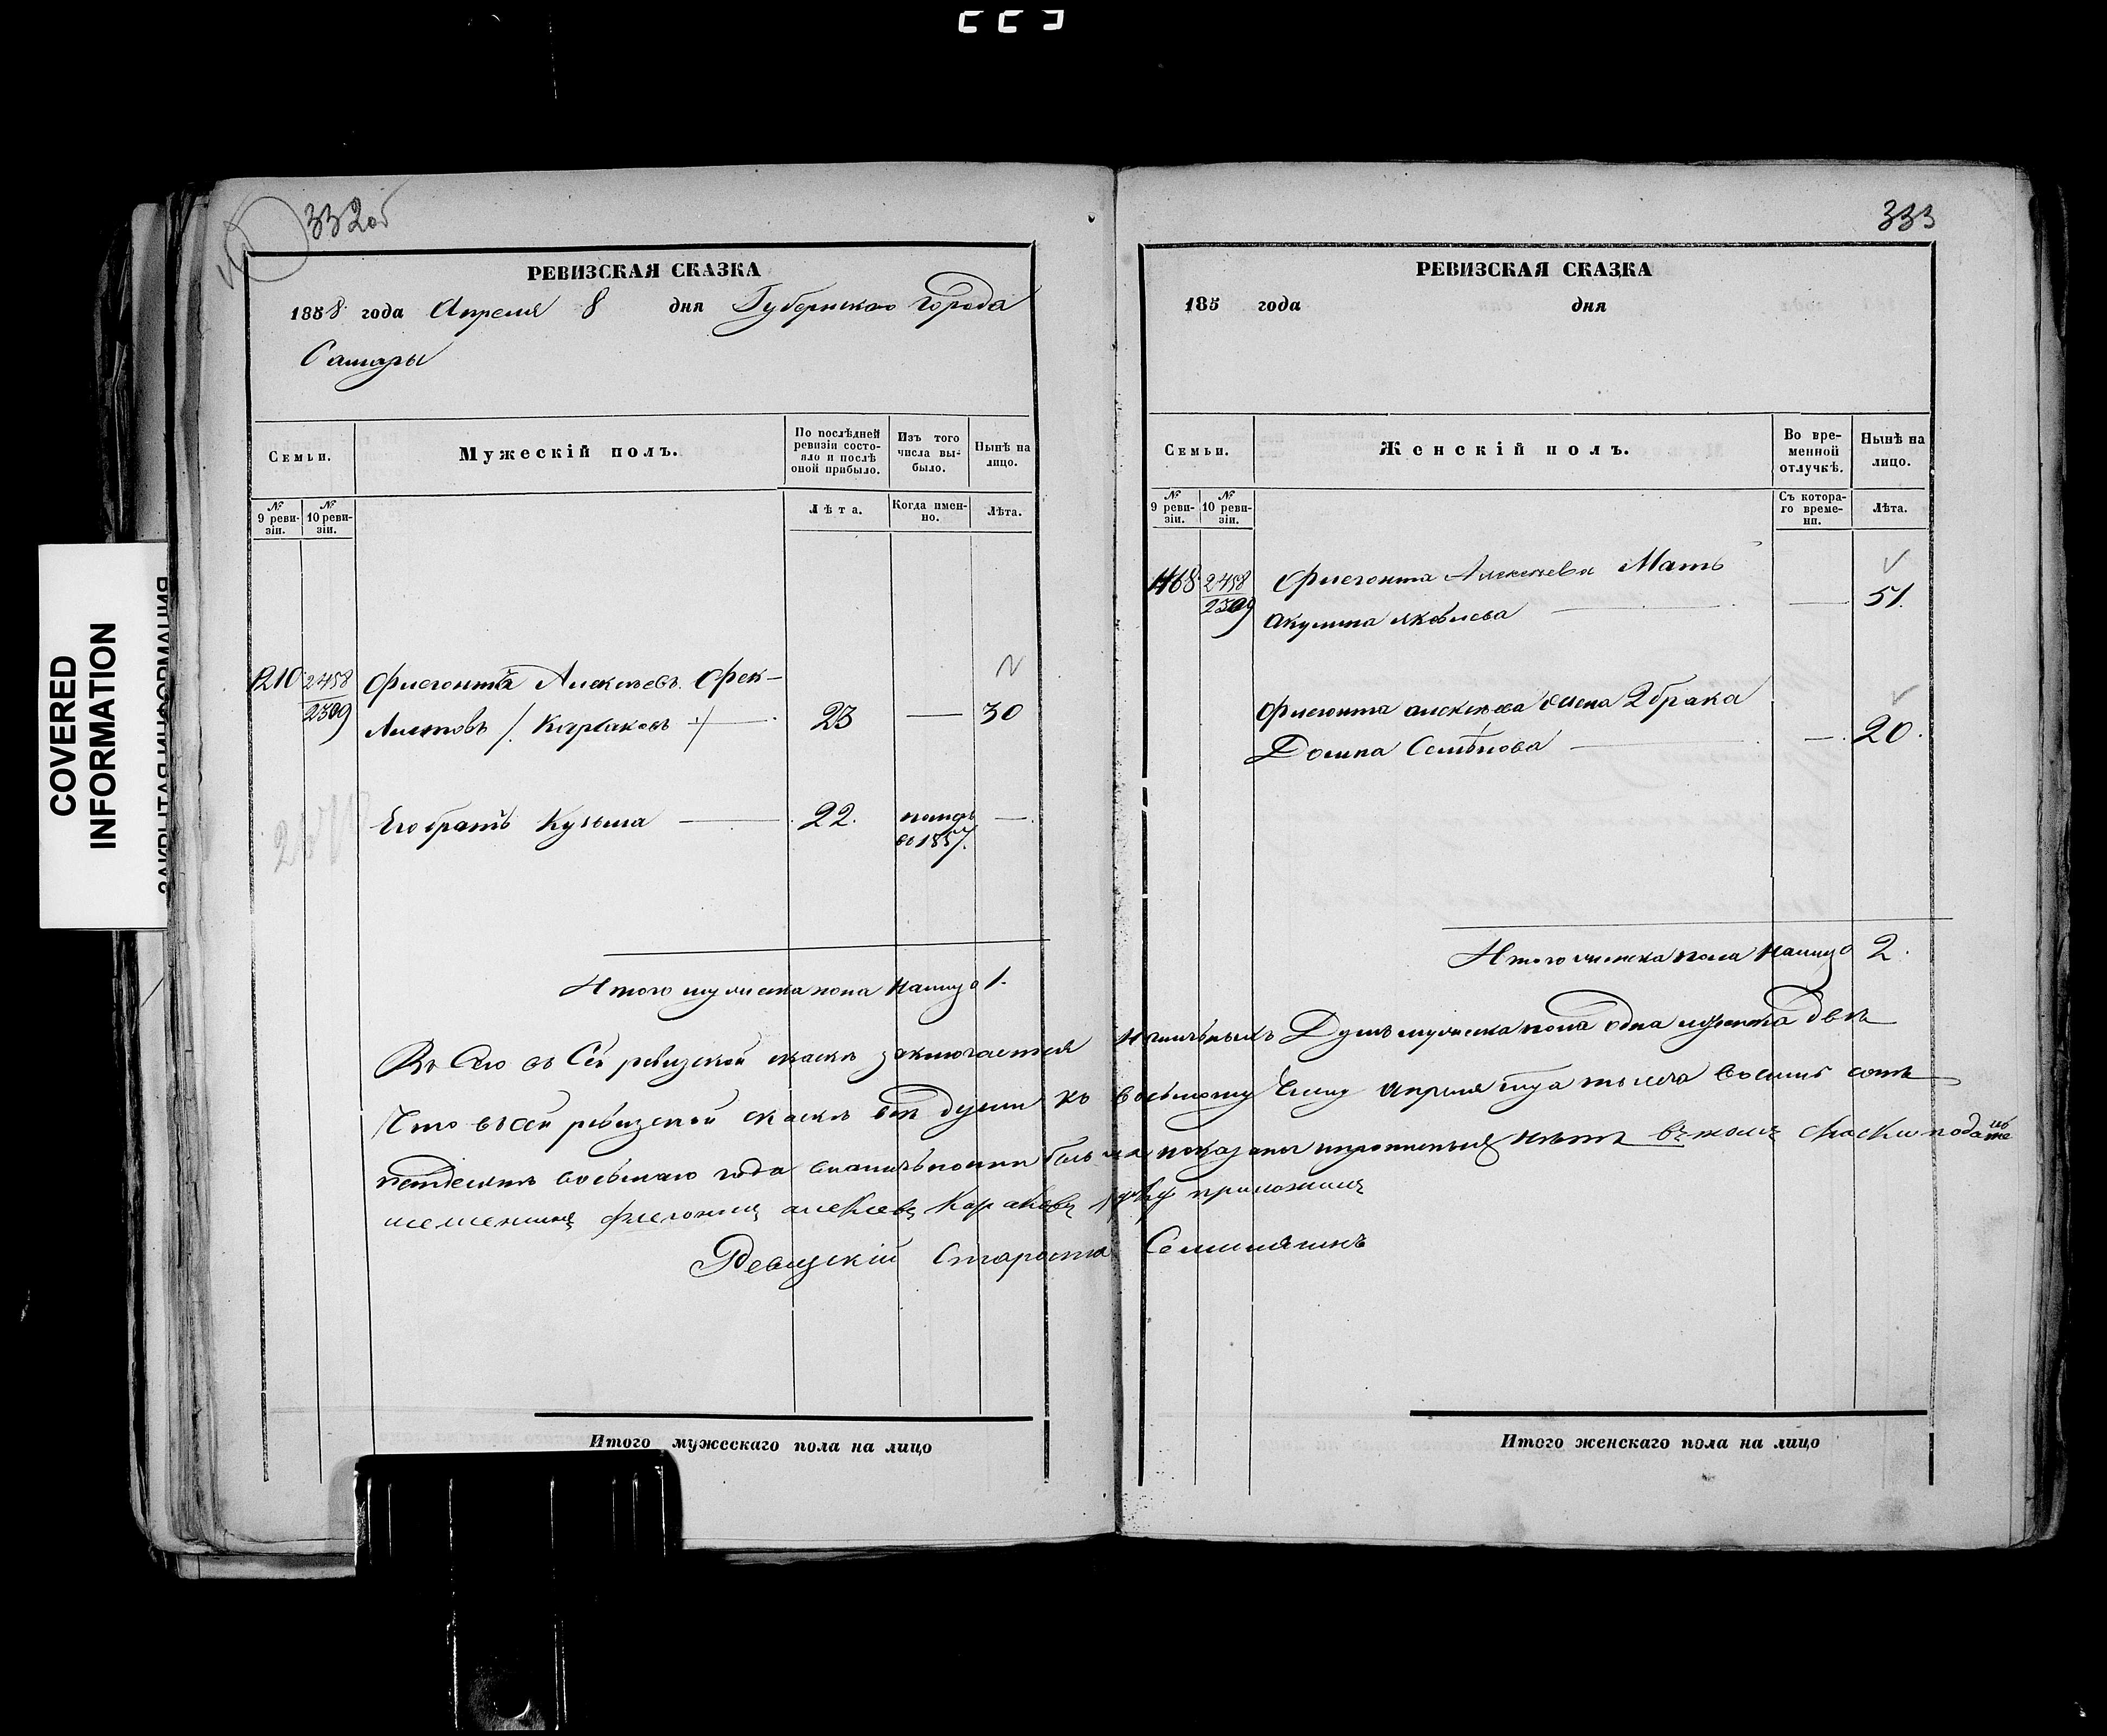 332об
РЕВИЗСКАЯ СКАЗКА
1858 года Апреля 8 дня Губернскаго города
Самары
Семьи.
Мужескій полъ.
По послѣдней ревизіи состояло и послѣ оной прибыло.
Изъ того числа выбыло.
Нынѣ на лицо.
№ 9 ревизіи.
№ 10 ревизіи.
Лѣта.
Когда именно.
Лѣта.
1210 2458
2309
Флегонтъ Алексѣевъ
23 — 30
Его братъ Кузьма — 22. померъ
въ 1857. —
Итого мужеска пола налицо 1.
333
РЕВИЗСКАЯ СКАЗКА
185 года дня
Семьи.
Женскій полъ.
Во временной отлучкѣ.
Нынѣ на лицо.
№ 9 ревизіи.
№ 10 ревизіи.
Съ котораго времени.
Лѣта.
1168 2458
2309
Флегонта Алексѣева Мать
Акулина Яковлева — — 51.
Флегонта Алексѣева жена 2 брака
Домна Семѣнова — — 20.
Итого женска пола налицо 2.
Въ сей ревизской скаскѣ заключается наличныхъ Душъ мужеска пола одна двѣ
Что въ сей ревизской скаскѣ всѣ души къ восьмому числу Апреля тысяча восемь сотъ
пятдесятъ восьмаго года показаны и пропущенныхъ нѣтъ
мещенинъ Флегонтъ Алексевъ руку приложилъ
Ревизскій Староста
Итого мужескаго пола на лицо
Итого женскаго пола на лицо
COVERED
INFORMATION
ЗАКРЫТАЯ ИНФОРМАЦИЯ